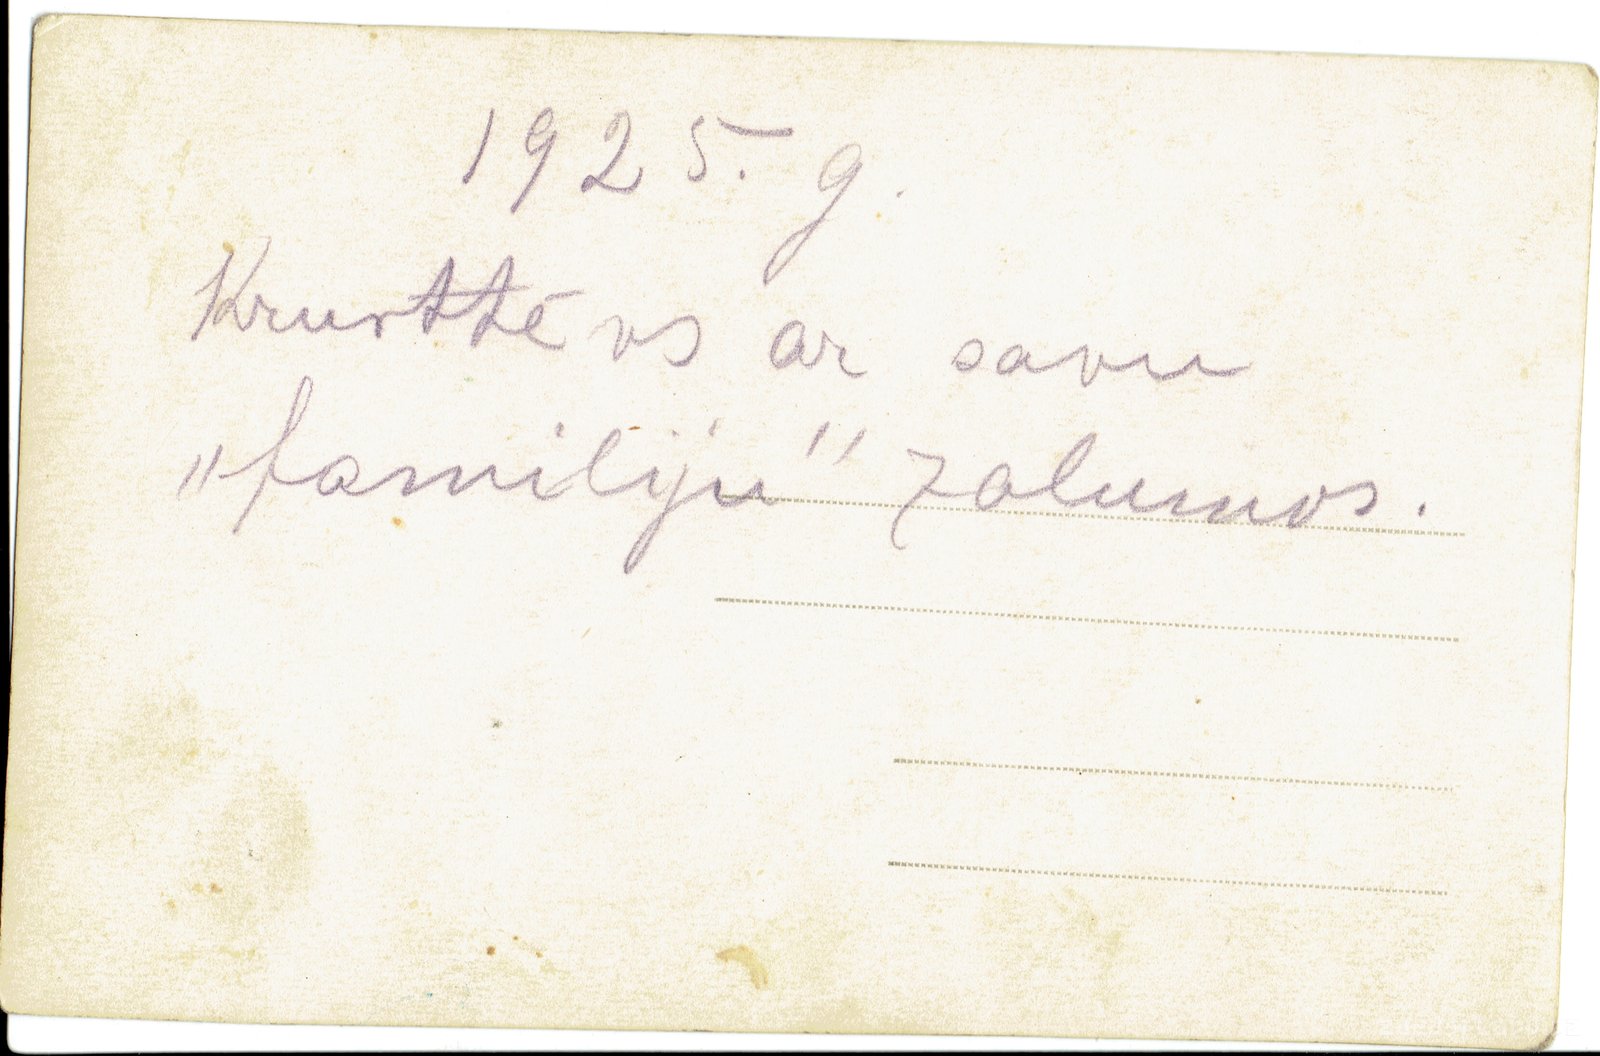 1925. g.
Krusttēvs ar savu
„familiju" zalumos.